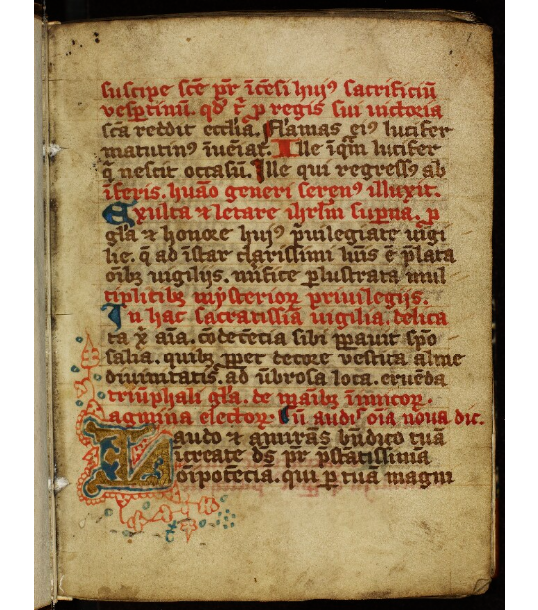 suscipe sc̄e pr̄ īcēsi huiꝰ sacrificiū
vesptinū. qd̓ t̄ p regis sui uictoria
sc̄a reddit eccl̄ia. Flāmas eiꝰ lucifer
matutinꝰ īueīat. Ille īqm̄ lucifer
q̄ nescit occasū. Ille qui regressꝰ ab
īferis. huāo generi serenꝰ illuxit.
Exulta ⁊ letare ihrlm̄ supna. p
gl̄a ⁊ honore huiꝰ p̄uilegiate uigi
lie. q̄ ad īstar clarissimi lūīs ē plata
oīb; uigilijs. mīfice plustrata mul
tiplitib; mysterioꝝ priuilegijs.
In hac sacratissīa uigilia, delica
ta x̄ aīa. cōdecētia sibi ppauit spō
salia. quib; ppet decore vestita alme
diuinitatis. ad ūbrosa loca. eruēda
triūphali gl̄a. de māib; īimicoꝝ.
agmina electoꝝ. sū audiꝰ oīa noua dic.
Laudo ⁊ amirās bn̄dico tuā
īcreate ds̄ pr̄ pstātissima
oīpotēcia. qui p tuā magni